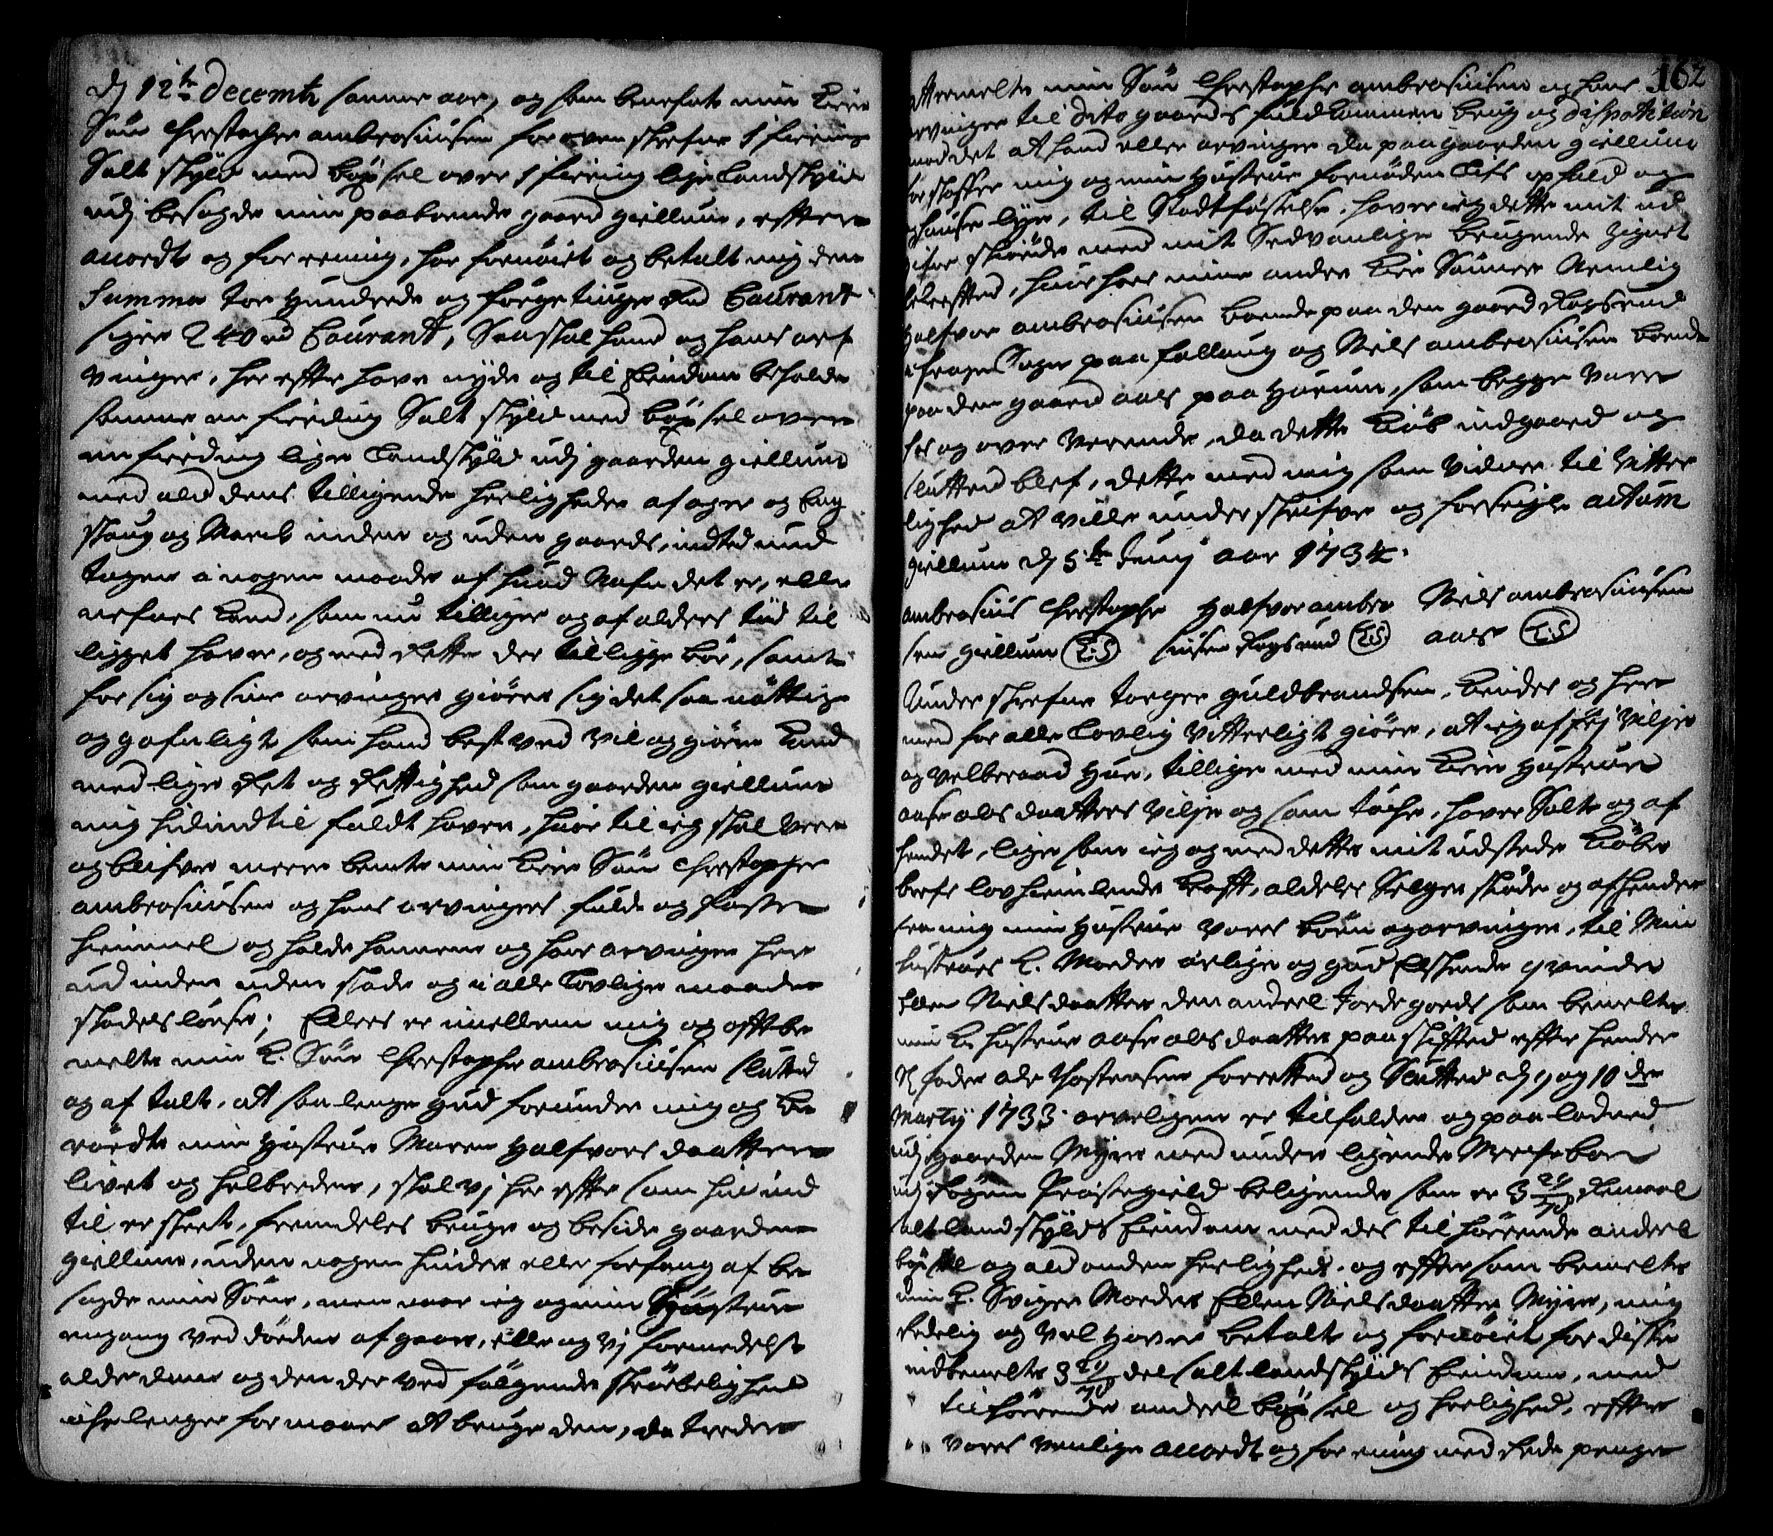 dj 12te Decembr samme aar, og som benefnte min kiere
Søn Christopher ambrosiusen for oven skrefne 1 fiering
Salt skyld med bøxsel over 1 fiering lige Landskyld
udj besagde min paaboende gaard giellum, efter
accordt og forrening, har fornøiet og betalt mig den
Summa toe Hundrede og førgetiuge rd Courant
siger 240 rd Courant, Saa skal hand og hans arf
vinger, her effter have nyde og til Eiendom beholde
samme en fierding Salt skyld med bøxsel over
en fierding lige Landskyld udj gaarden giellum
med ald dens tilligende herligheder af ager og Eng
skoug og Marck inden og uden gaards, indted und
tagen i nogen maade af huad Nafn det er, eller
nefnes kand, som nu tilliger og af alders tiid til
ligget haver, og med Rette der tilligge bør, samt
for sig og sine arvinger giøre sig det saa nøttig
og gafnligt som hand best ved vil og giøre kand
med lige Ret og Rettighed som gaarden giellum
mig hidindtil fuldt haver, huor til ieg skal vere
og blifve meere bemte min kiere Søn Christopher
ambrosiusen og hans arvingers fulde og faste
hiemmel og holde hannem og hans arvinger her
ud inden uden skade og i alle Lovlige maader
skadesløse; Ellers er imellem mig og offtbe
melte min k. Søn Christopher ambrosiusen sluttet
og af talt, at saa lenge gud forunder mig og be
rørdte min Hustrue Maren Halfvors daatter
livet og helbreden, skal vj her effter som hid ind
til er skeet, fremdeles bruge og beside gaarden
giellum, uden nogen hinder eller forfang af be
sagde min Søn, men naar ieg og min Hustrue
engang ved døden afgaar, eller og vj formedelst
alderdom og den der ved følgende skrøbelighed
iche lenger formaaer at bruge den, da treder
162
attermelte min Søn Christopher ambrosiusen og hans
arvinger til dito gaards fuldkommen brug og disposition
mod det at hand eller arvinger da paa gaarden giellum
forskaffer mig og min Hustrue fornøden Lifs ophold og
huuse lye, til Stadfæstelse, haver ieg dette mit ud
gifne skiøde med mit Sedvanlige brugende Zignet
bekrefted, huor hos mine andre kiere Sønner Nemlig
Halfvor ambrosiusen boende paa den gaard Rogsrud
i Sogn paa Follaug og Niels ambrosiusen boende
paa den gaard aas paa Hurum, som begge vare
hos og over værende, da dette kiøb indgaaed og
slutted blef, dette med mig som vidner til vitter
lighed at ville underskrifve og forseigle actum
giellum dj 5te Junij aar 1734.
ambrosius Christopher Halfvor ambro Niels ambrosiusen
sen giellum (L:S) siusen Rogsrud (L:S) aas (L:S)
Underskrefne torger guldbrandsen, kiender og her
med for alle Lovlig vitterligt giøre, at ieg af frj vilje
og velberaad Hue, tillige med min kiere Hustrues
aase olsdaatters vilje og samtøche, haver Solt og af
hendet, lige som ieg og med dette mit udstede kiøbe
bref lovhiemlende krafft, aldeles Selger skiøder og afhender
fra mig min Hustrue vores børn og arvinger, til Min
hustrues k. Moder ærlige og gud Elskende qvinde
Elen Nielsdaatter den andeel Jorde gods som bemelte
min k. hustrue aase olsdaatter paa skifftet effter hendes
Sl fader ole Thostensen forrettet og Sluttet dj 9 og 10 de
Martij 1733 arveligen er tilfalden og paa lodned
udj gaarden Myre med underligende
udj Præstegield beligende som er 3 29/70 Remeel
salt landskylds Eiendom med des tilhørende andeel
bøxsel og ald anden herlighed. og effter som bemelte
min k. Sviger Moder Elen Nielsdaatter Myre, mig
Redelig og vel haver betalt og fornøiet for disse
indbemelte 3 29/70 del salt landskylds Eiendom, med
tilhørende andeel bøxsel og herlighed, effter
vores venlige accordt og forening med Rede penger